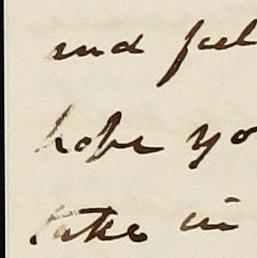 and feel
hope yo
take in